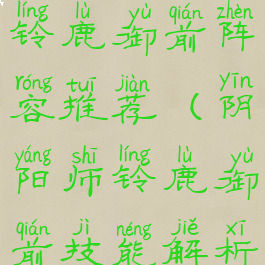 líng lù yù qián zhèn
铃鹿御前阵
róng tuī jiàn yīn
容推荐（阴
yáng shī líng lù yù
阳师铃鹿御
qián jì néng jiě xī
前技能解析